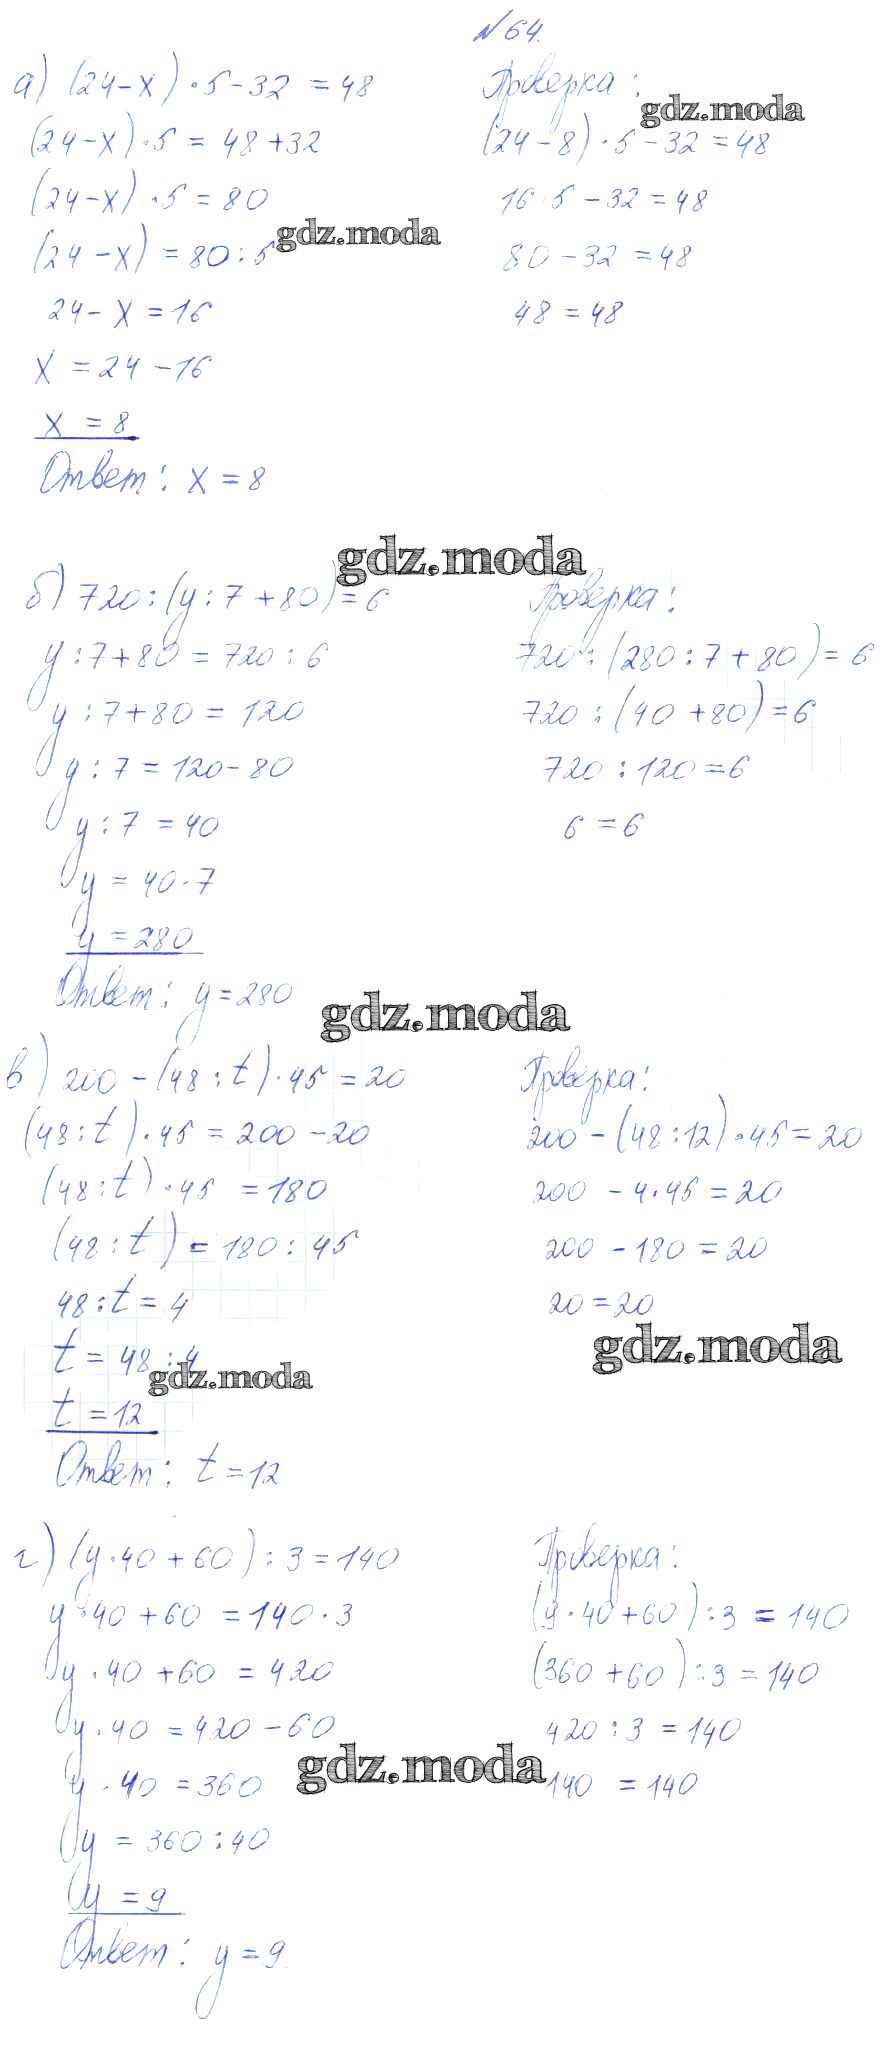 №64.
а) (24-x)·5-32=48
(24-x)·5=48+32
(24-x)·5=80
(24-x)=80:5
24-x=16
x=24-16
x=8
Ответ: x=8
Проверка:
gdz.moda
(24-8)·5-32=48
16·5-32=48
gdz.moda
80-32=48
48=48
gdz.moda
б) 720:(y:7+80)=6
y:7+80=720:6
y:7+80=120
y:7=120-80
y:7=40
y=40·7
y=280
Ответ: y=280
Проверка:
720:(280:7+80)=6
720:(40+80)=6
720:120=6
6=6
gdz.moda
в) 200-(48:t)·45=20
(48:t)·45=200-20
(48:t)·45=180
(48:t)=180:45
48:t=4
t=48:4
gdz.moda
t=12
Ответ: t=12
Проверка:
200-(48:12)·45=20
200-4·45=20
200-180=20
20=20
gdz.moda
г) (y·40+60):3=140
y·40+60=140·3
y·40+60=420
y·40=420-60
y·40=360
y=360:40
y=9
Ответ: y=9
Проверка:
(9·40+60):3=140
(360+60):3=140
420:3=140
gdz.moda
140=140